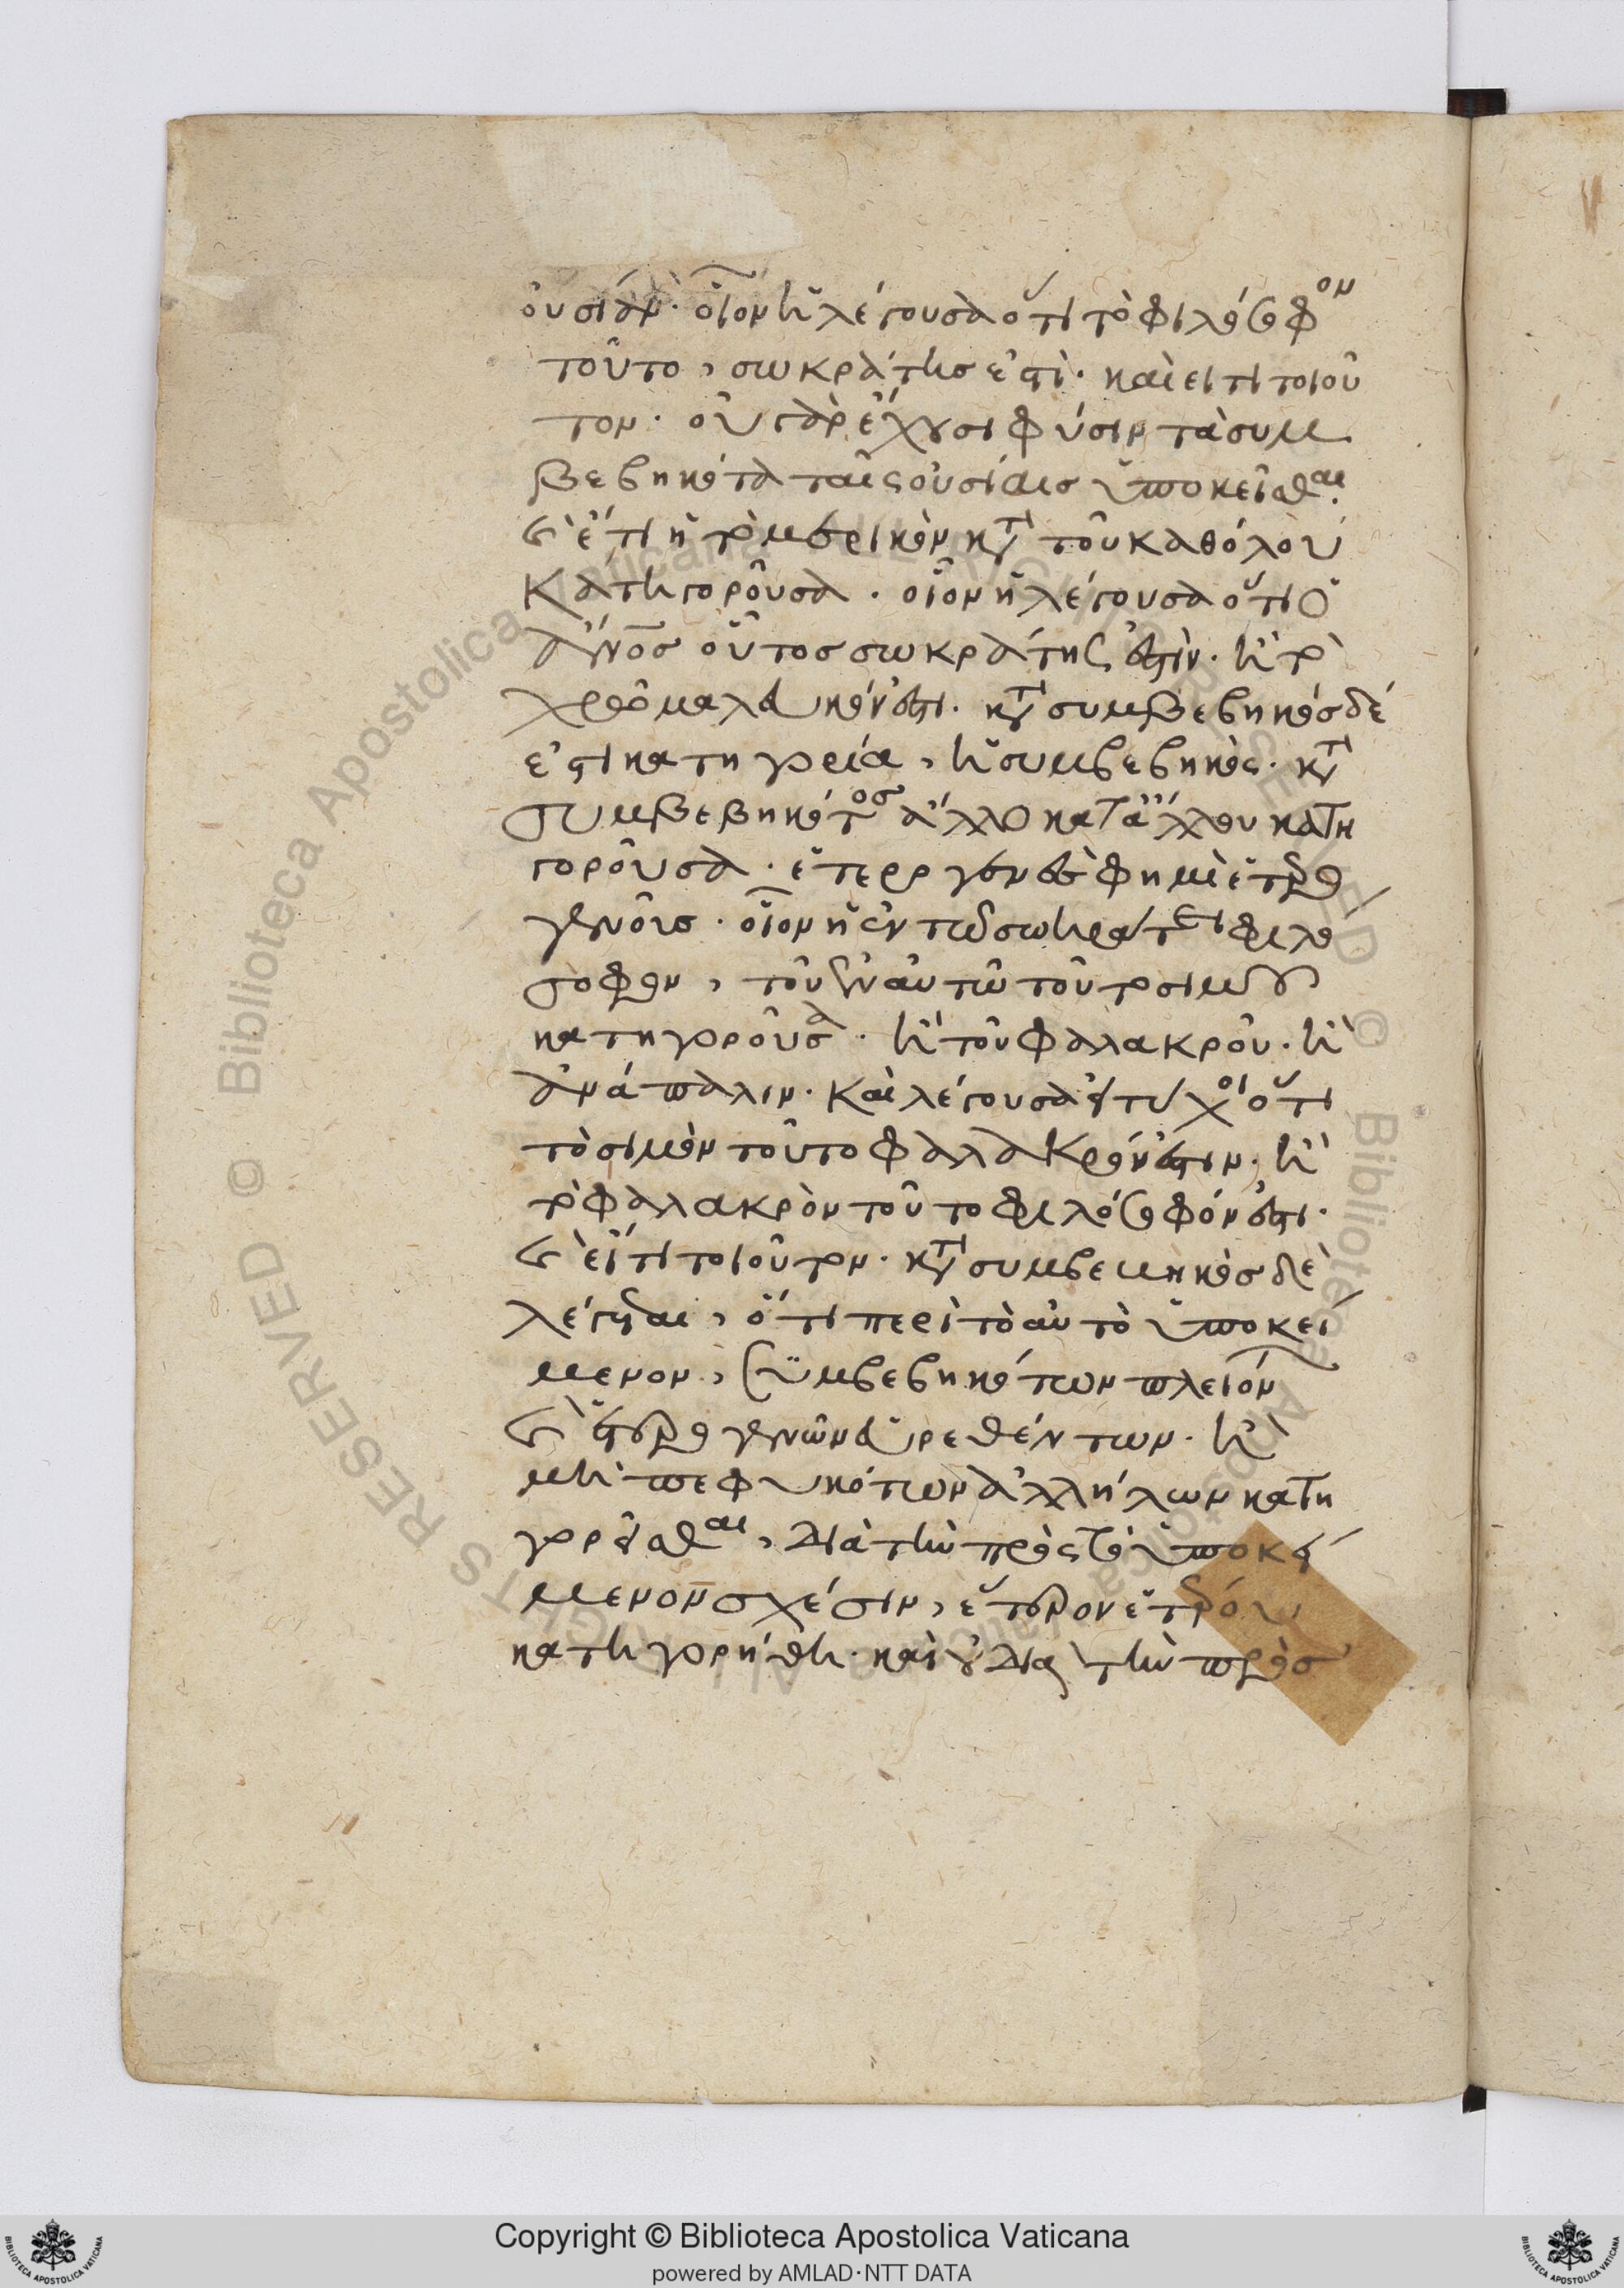 οὐσίαν· οἷον ἡ λέγουσα ὅτι τὸ φιλόσοφον
τοῦτο, σωκράτης ἐστί· καὶ εἴ τι τοιοῦ
τον· οὐ γὰρ ἔχουσι φύσιν τὰ συμ
βεβηκότα ταῖς οὐσίαις ὑποκεῖσθαι·
καὶ ἔτι ἡ τὸ μερικὸν κατὰ τοῦ καθόλου
κατηγοροῦσα· οἷον ἡ λέγουσα ὅτι ὁ
ἄνος οὗτος σωκράτης ἐστίν· ἢ τὸ
χρῶμα λευκόν ἐστι· κατὰ συμβεβηκός δέ
ἐστι κατηγορία, ἡ συμβεβηκὸς κατὰ
συμβεβηκότος ἄλλο κατ' ἄλλου κατη
γοροῦσα· ἕτερογενὲς φημὶ ἑτερο
γενοῦς· οἷον ἡ ἐν τῷ σωκράτει φιλό
σοφον, τοῦ ἐν αὐτῷ τούτου σιμοῦ
κατηγοροῦσα· ἢ τοῦ φαλακροῦ· ἢ
ἀνάπαλιν· καὶ λέγουσα εἰ τύχοι ὅτι
τὸ σιμὸν τοῦτο φαλακρόν ἐστιν· ἢ
τὸ φαλακρὸν τοῦτο φιλόσοφόν ἐστι·
καὶ εἴ τι τοιοῦτον· κατὰ συμβεβηκὸς δὲ
λέγεται, ὅτι περὶ τὸ αὐτὸ ὑποκεί
μενον, συμβεβηκότων πλειόνων
καὶ ἑτερογενῶν εὑρεθέντων· καὶ
μὴ πεφυκότων ἀλλήλων κατη
γορεῖσθαι, διὰ τὴν πρὸς τὸ ὑποκεί
μενον σχέσιν, ἕτερον ἑτέρου
κατηγορήθη· καὶ οὐ διὰ τὴν πρὸς
Copyright © Biblioteca Apostolica Vaticana
powered by AMLAD·NTT DATA